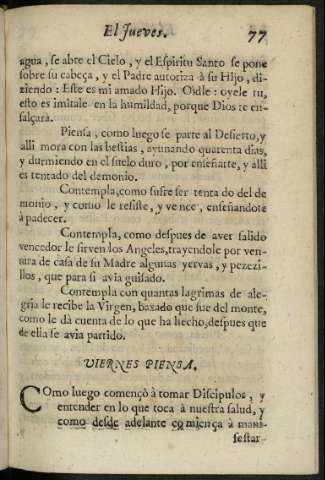 El Jueves. 77
agua, se abre el Cielo, y el Espiritu Santo se pone
sobre su cabeça, y el Padre autoriza à su Hijo, di-
ziendo: Este es mi amado Hijo. Oidle: oyele tu,
esto es imitale en la humildad, porque Dios te en-
salçarà.
Piensa, como luego se parte al Desierto, y
alli mora con las bestias, ayunando quarenta dias,
y durmiendo en el suelo duro, por enseñarte, y alli
es tentado del demonio.
Contempla, como sufre ser tenta do del de
monio, y como le resiste, y vence, enseñandote
à padecer.
Contempla, como despues de aver salido
vencedor le sirven los Angeles, trayendole por ven-
tura de casa de su Madre algunas yervas, y pezezi-
llos, que para si avia guisado.
Contempla con quantas lagrimas de ale-
gria le recibe la Virgen, baxado que fue del monte,
como le dà cuenta de lo que ha hecho, despues que
de ella se avia partido.
VIERNES PIENSA.
COmo luego començò à tomar Discipulos, y
entender en lo que toca à nuestra salud, y
como desde adelante comiença à mani-
festar-